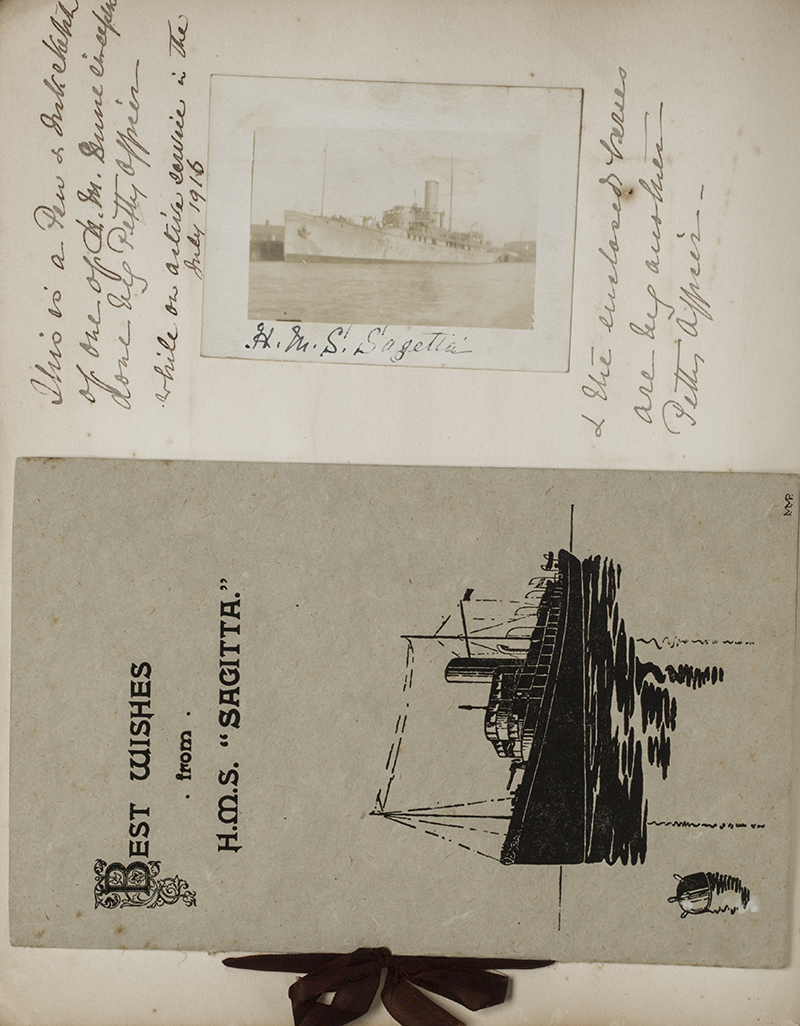 This is a Pen & Ink Sketch
of one of H. M. Mine
done by Petty Officer
while on active service in the
July 1916
H. M. S. Sagetta
& the enclosed verses
are by another
Petty Officer –
BEST WISHES
· from ·
H.M.S. “SAGITTA.”